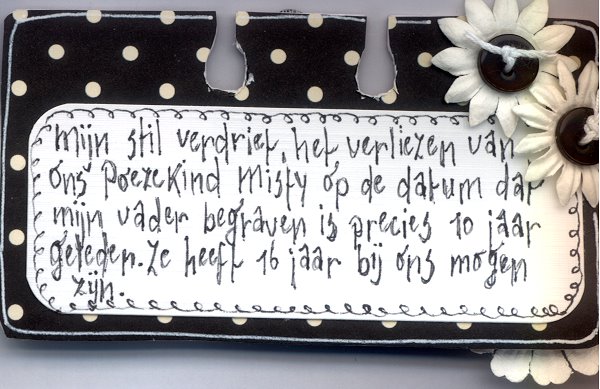 mijn stil verdriet, het verliezen van
ons Poezekind Misty op de datum dat
mijn vader begraven is precies 10 jaar
geleden. Ze heeft 16 jaar bij ons mogen
zijn.